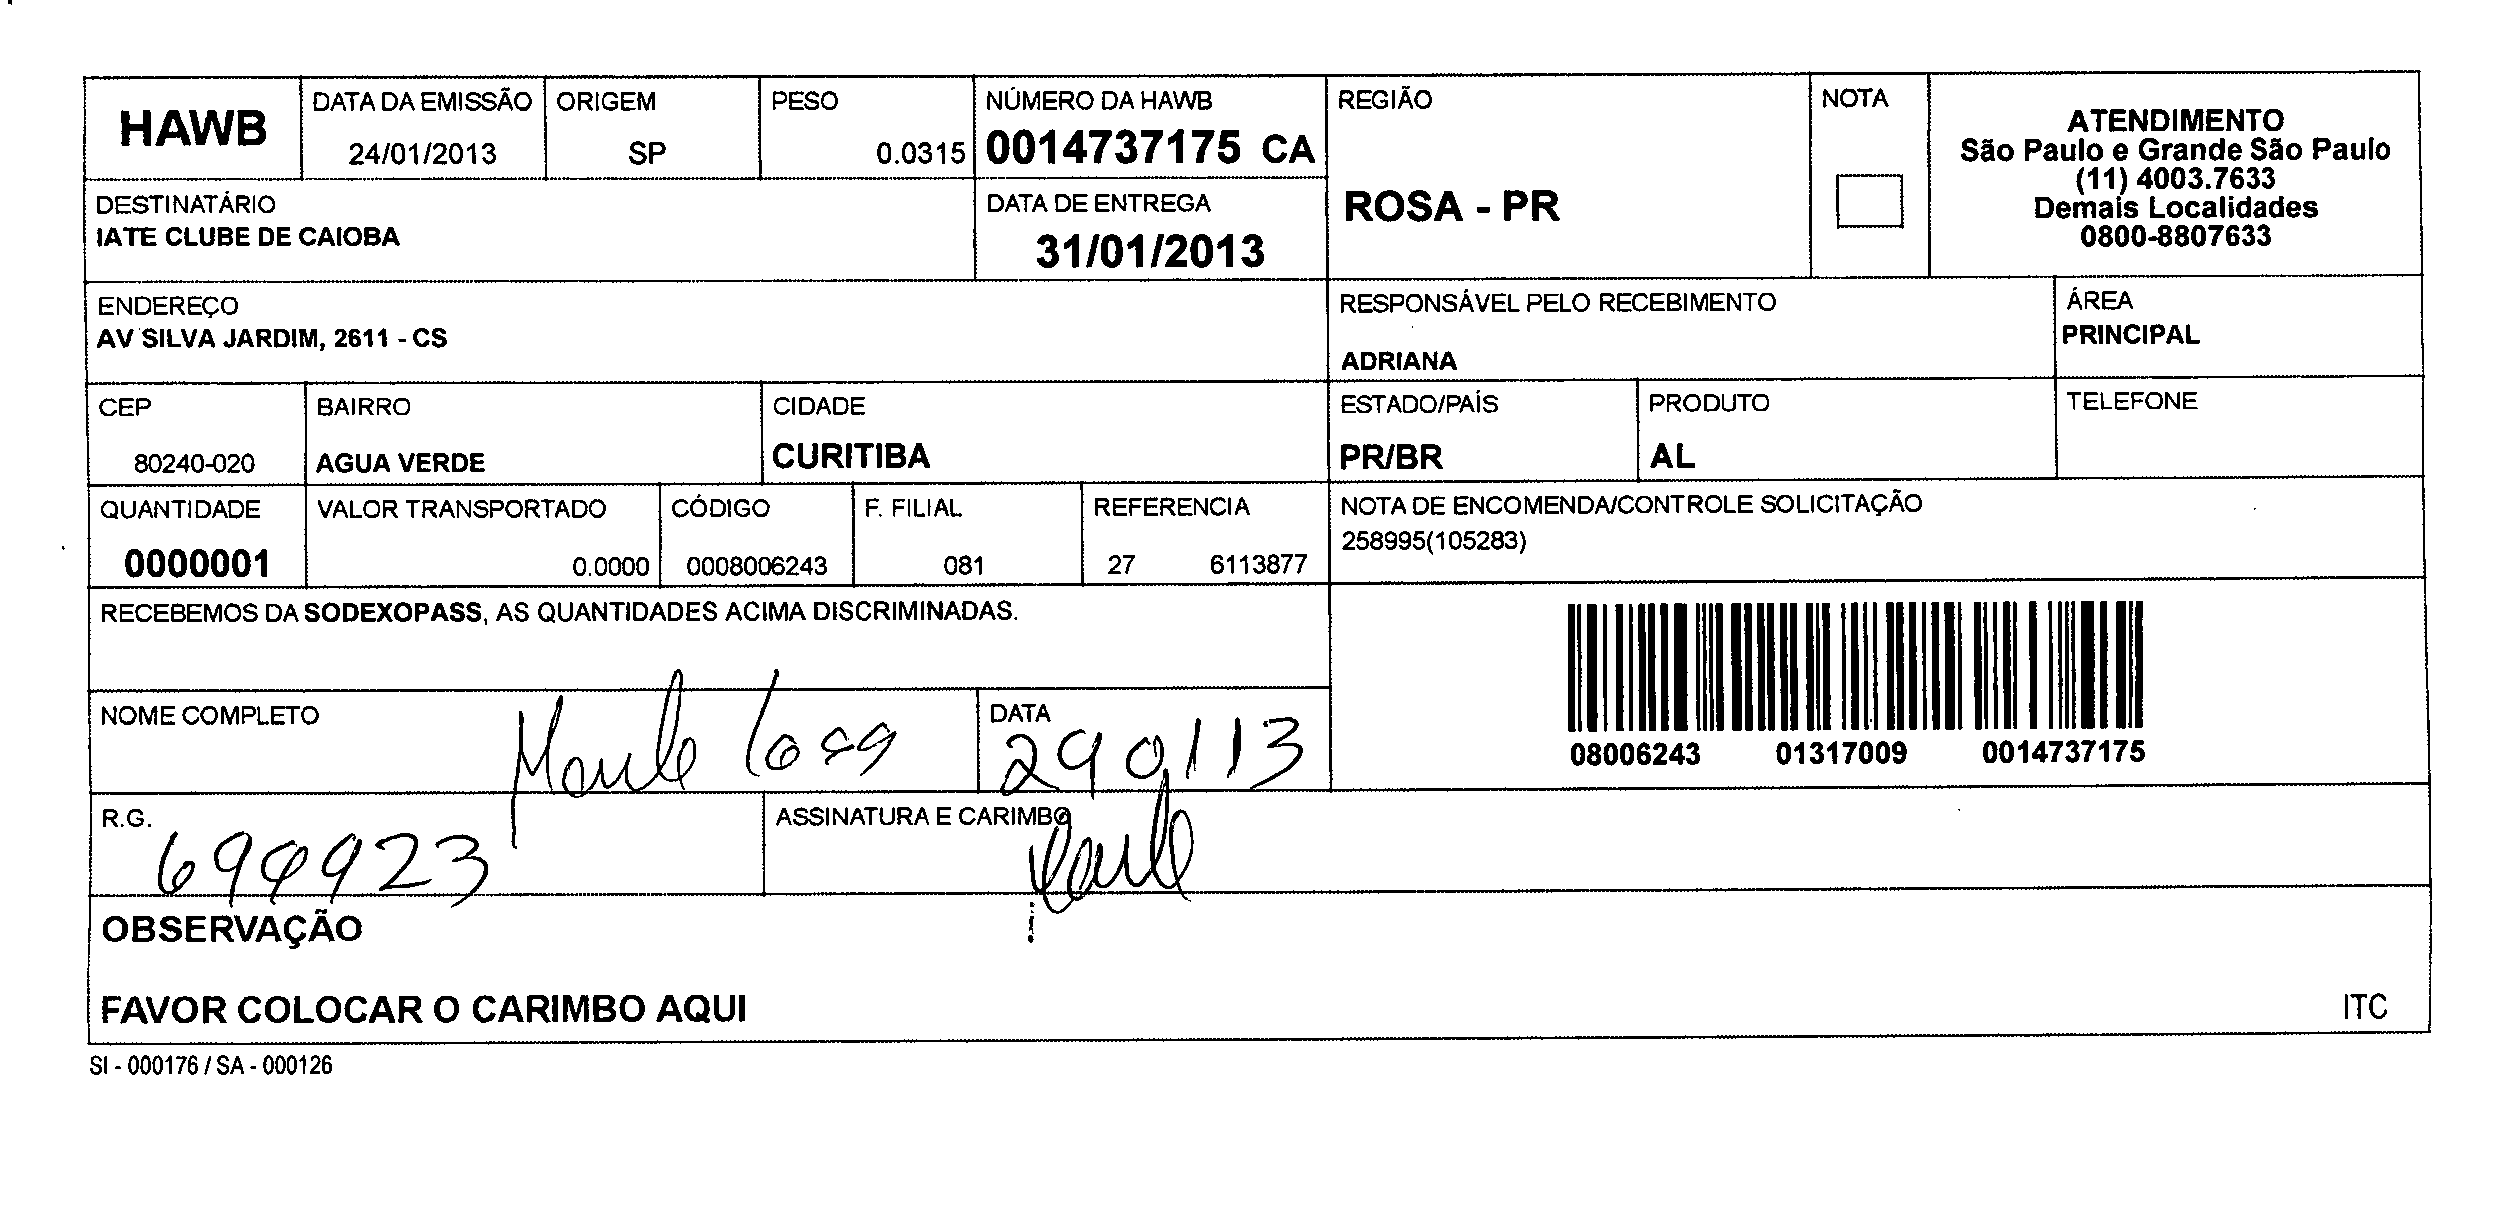 HAWB
DATA DA EMISSÃO
24/01/2013
ORIGEM
SP
PESO
0.0315
NÚMERO DA HAWB
0014737175 CA
REGIÃO
ROSA - PR
NOTA
ATENDIMENTO
São Paulo e Grande São Paulo
(11) 4003.7633
Demais Localidades
0800-8807633
DESTINATÁRIO
IATE CLUBE DE CAIOBA
DATA DE ENTREGA
31/01/2013
ENDEREÇO
AV SILVA JARDIM, 2611 - CS
RESPONSÁVEL PELO RECEBIMENTO
ADRIANA
ÁREA
PRINCIPAL
CEP
80240-020
BAIRRO
AGUA VERDE
CIDADE
CURITIBA
ESTADO/PAÍS
PR/BR
PRODUTO
AL
TELEFONE
QUANTIDADE
0000001
VALOR TRANSPORTADO
0.0000
CÓDIGO
0008006243
F. FILIAL
081
REFERENCIA
27 6113877
NOTA DE ENCOMENDA/CONTROLE SOLICITAÇÃO
258995(105283)
RECEBEMOS DA SODEXOPASS, AS QUANTIDADES ACIMA DISCRIMINADAS.
08006243 01317009 0014737175
NOME COMPLETO
DATA
290113
R.G.
ASSINATURA E CARIMBO
OBSERVAÇÃO
FAVOR COLOCAR O CARIMBO AQUI
ITC
SI - 000176 / SA - 000126